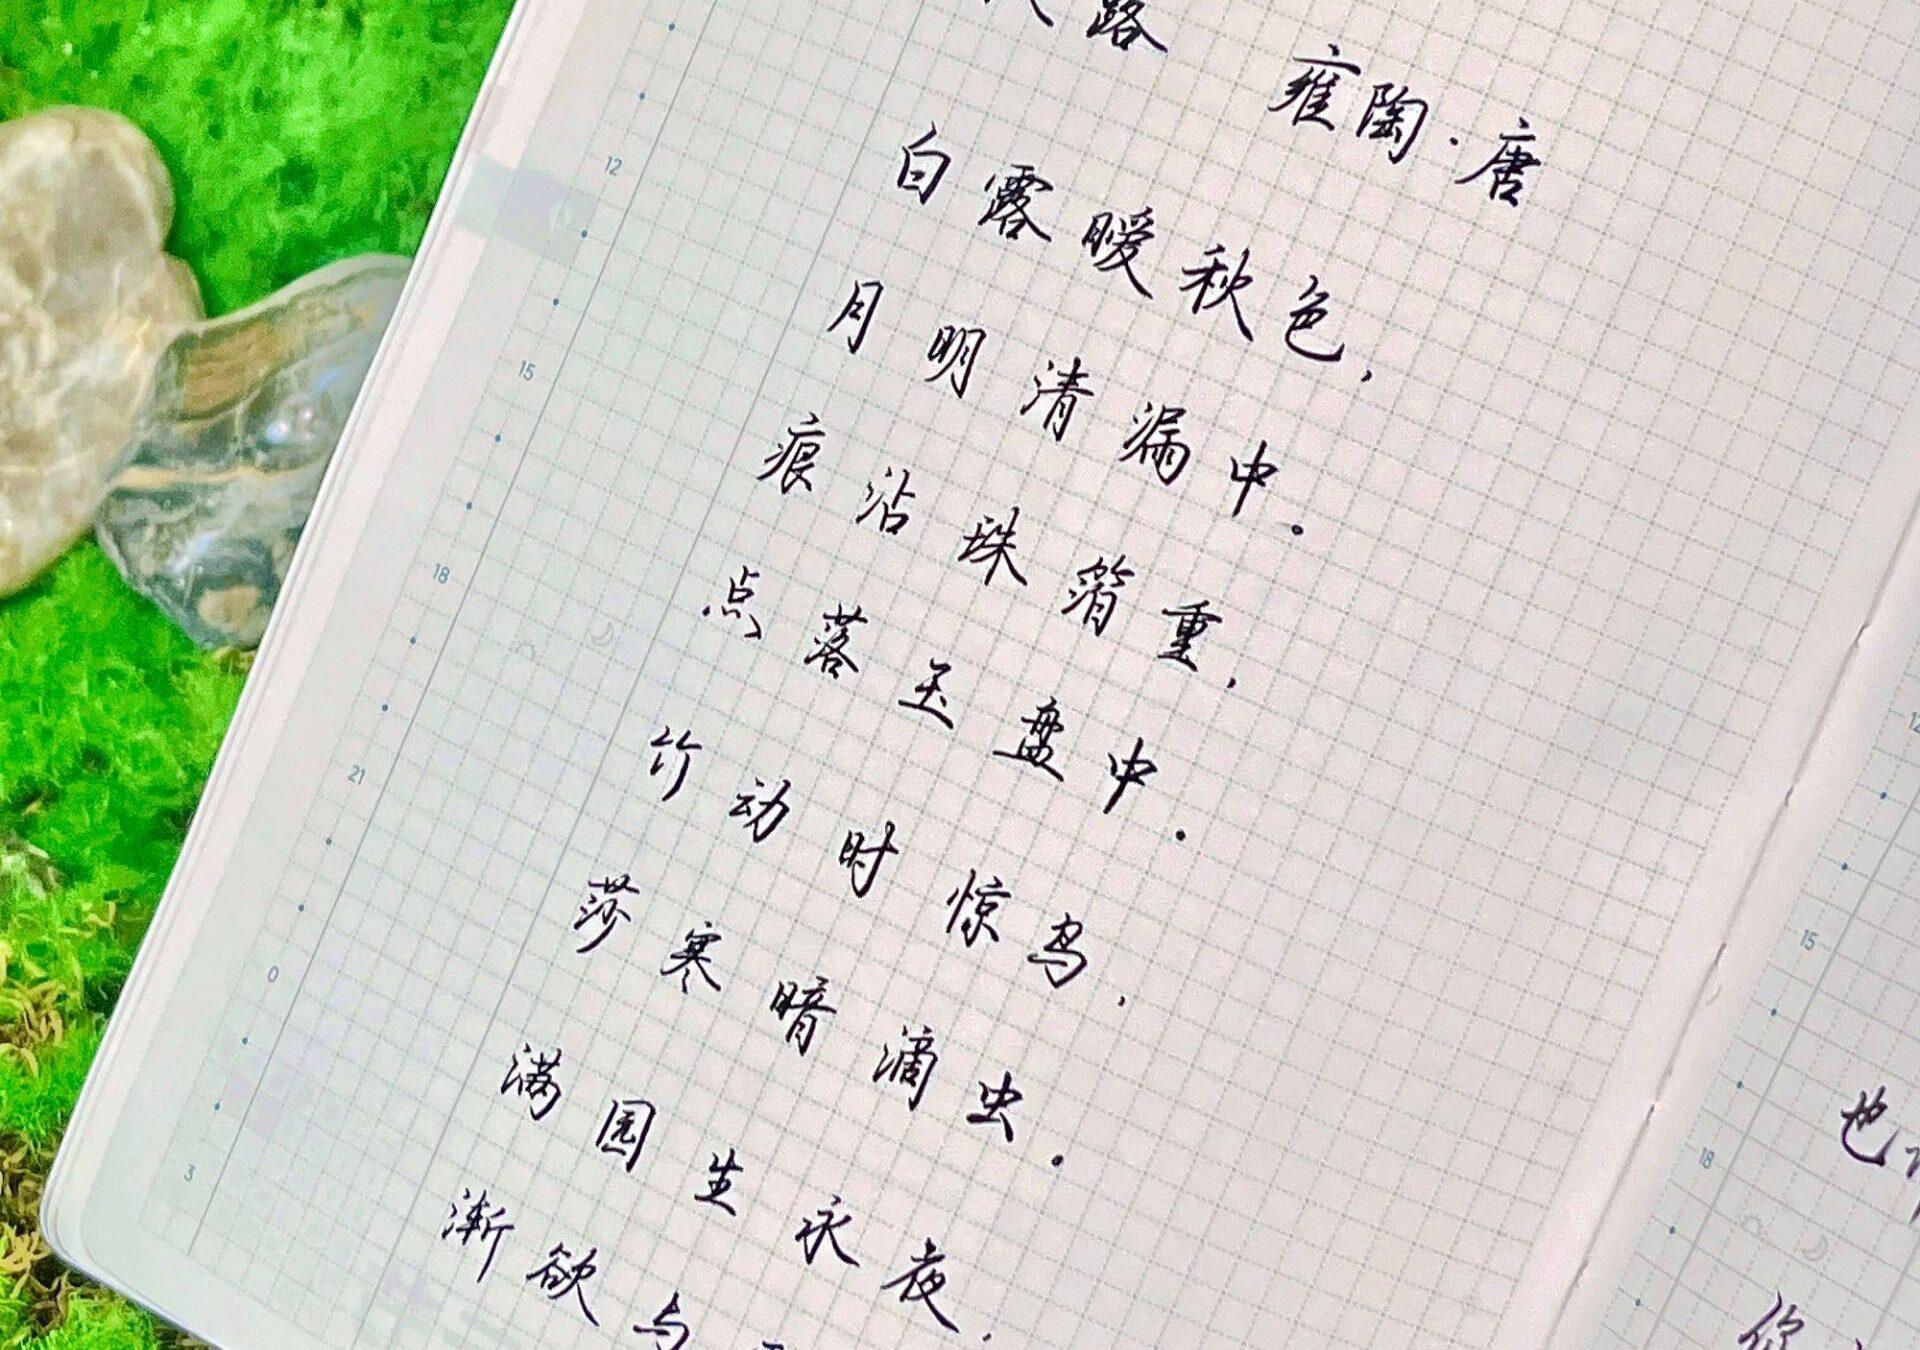 雍陶·唐
白露暧秋色,
月明清漏中。
痕沾珠箔重,
点落玉盘中.
竹动时惊鸟,
莎寒暗滴虫.
满园生永夜,
渐欲与
12
15
18
21
0
3
15
18
也
你